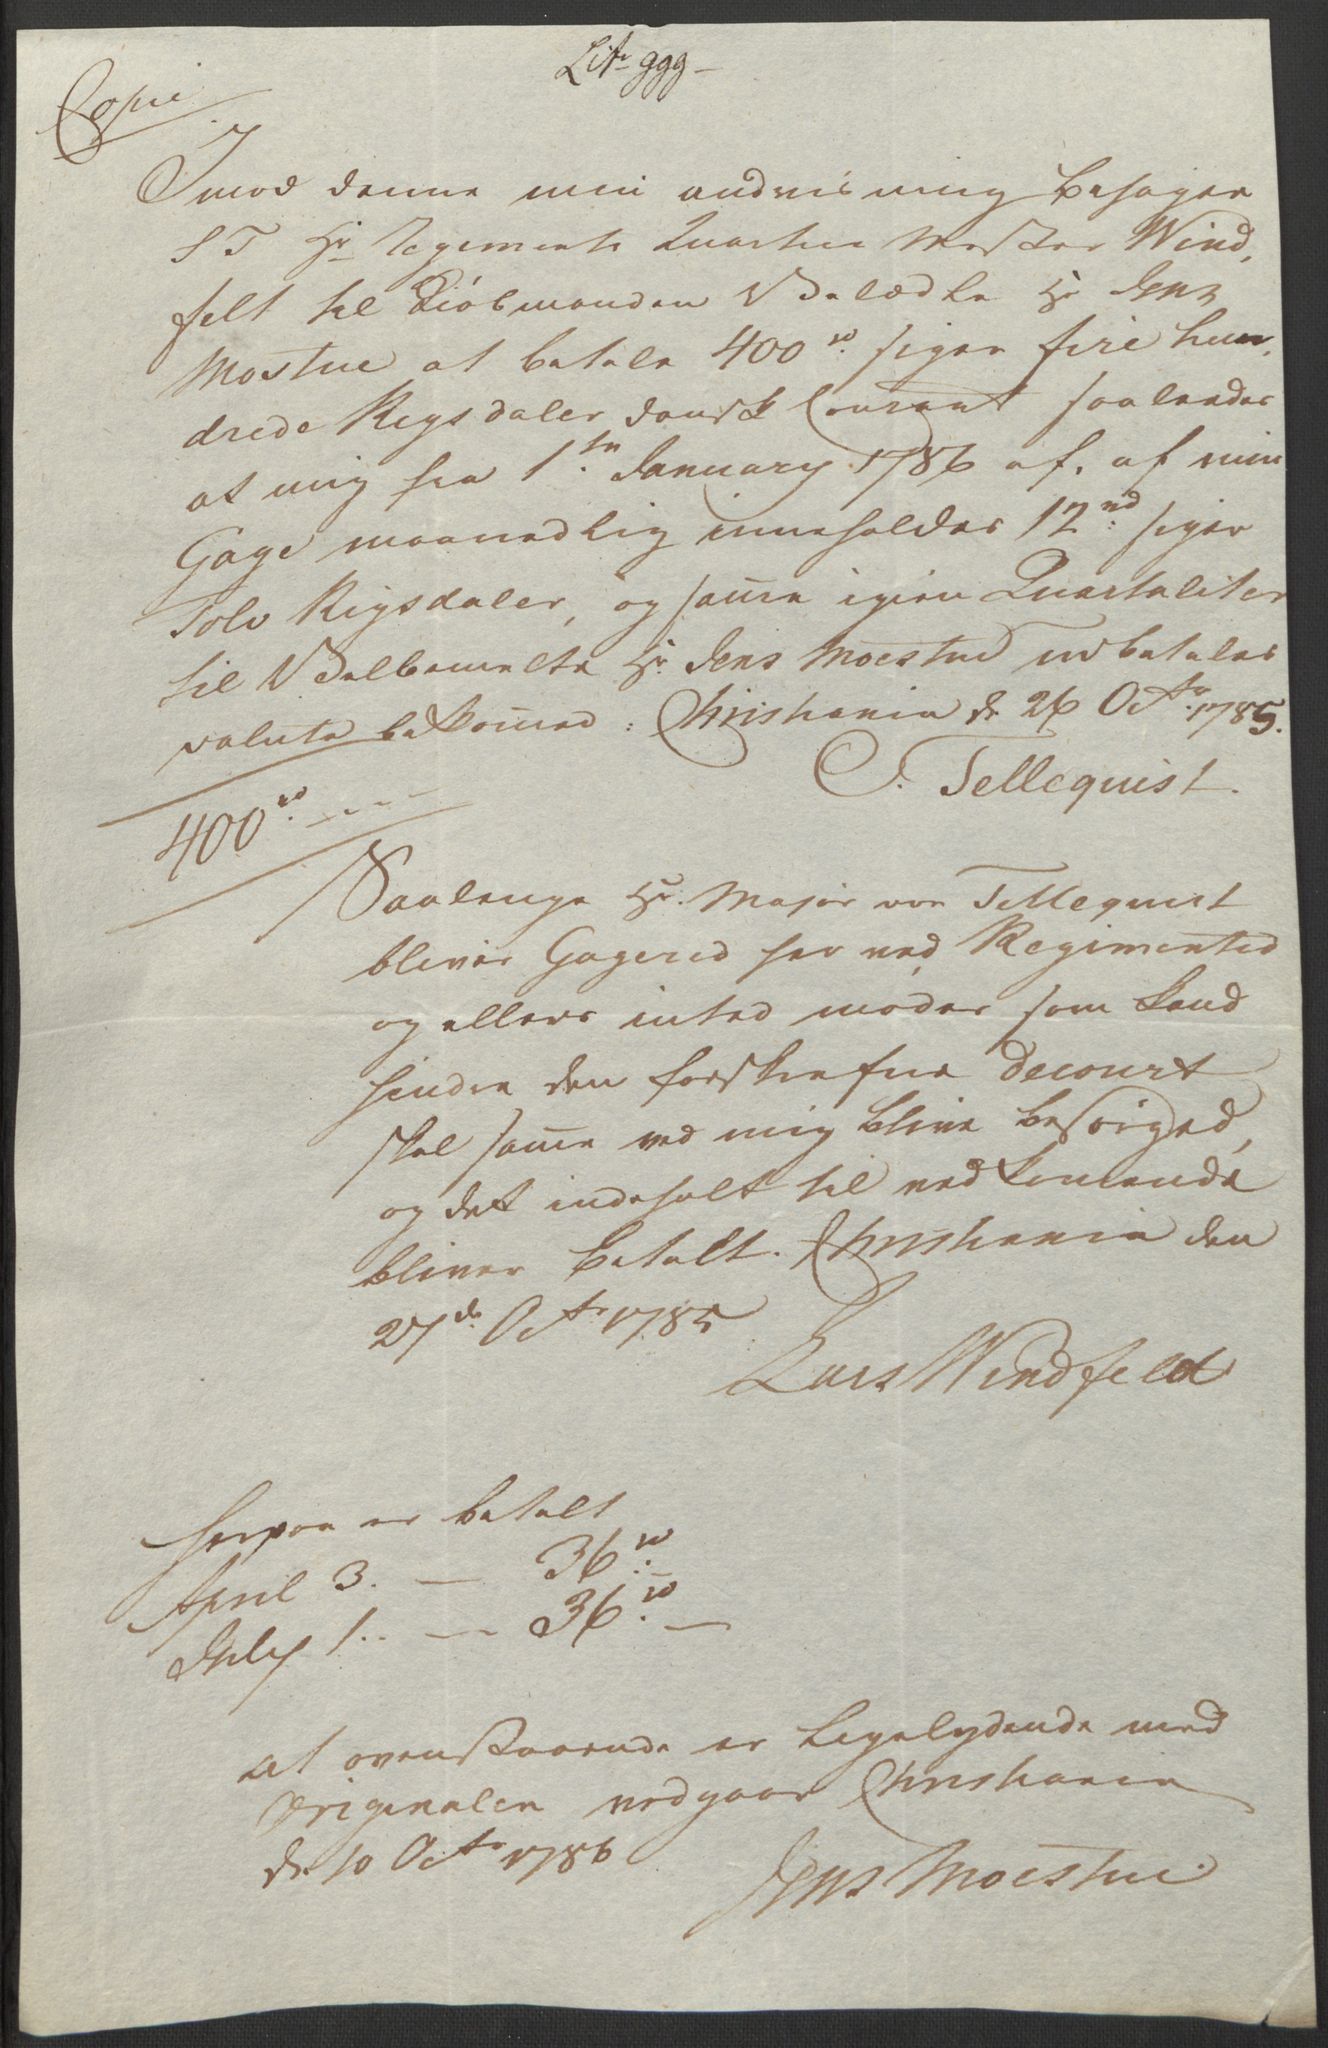 Litr ggg
Copie
Imod denne min andvisning behager
S T Hr Regiments Quarteer Mester Wind,
felt til Kiöbmanden Velædle Hr Jens
Mostue at betale 400 rd. siger fire hun,
drede Rigsdaler dansk Courant saaledes
at mig fra 1.ten January 1786 af, af min
Gage maanedlig inneholdes 12 rd. siger
Tolv Rigsdaler, og samme igien Quartaliter
til Velbemelte Hr. Jens Moestue udbetales
valuta bekommed: Christiania d. 26 Octbr. 1785.
C. Tellequist.
400 rd.
Saalenge Hr. Major von Tellequist
bliver Gagered her ved Regimented
og ellers inted möder som kand
hindre den forskrefne Decourt
skal samme ved mig blive besörged,
og det indeholt til vedkommende
bliver betalt. Christiania den
27de Octr 1785
Lars Windfeld
herpaa er betalt
April 3. — 36 rd.
July 1. — 36 rd. —
at ovenstaaende er Ligelydende med
Originalen vedgaar Christiania
d. 10 Octr 1786
Jens Moestue.